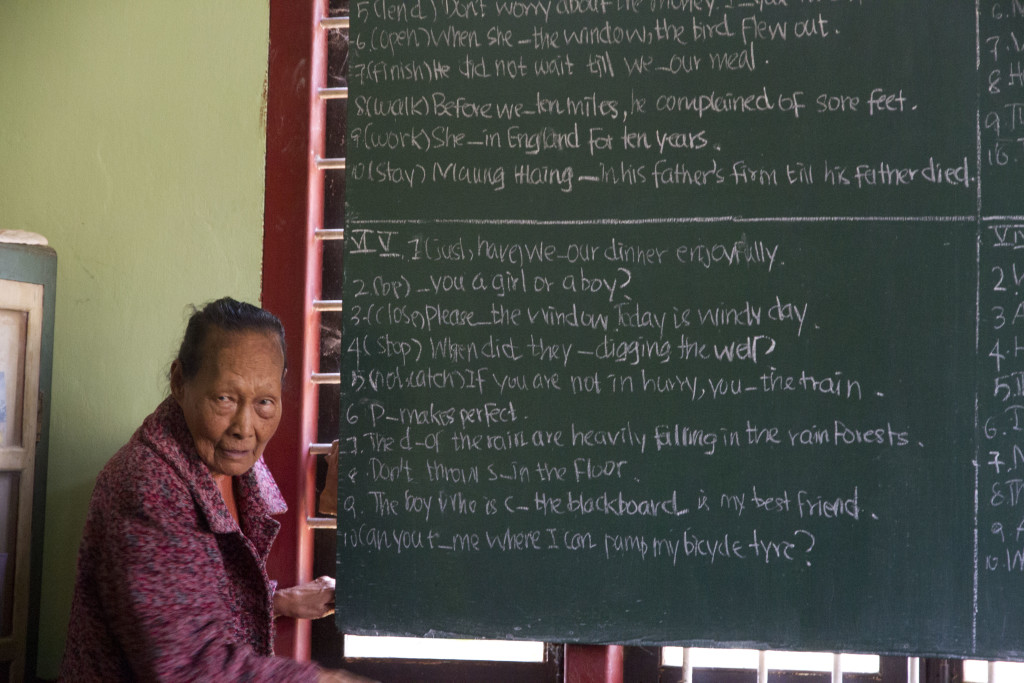 5 (lend) Don't worry about the money. I
6. (open) When she – the window, the bird flew out.
7. (finish) He did not wait till we – our meal.
8 (walk) Before we – ten miles, he complained of sore feet.
9 (work) She – in England for ten years.
10 (stay) Maung Haing – in his father's firm till his father died.
1 (just, have) we – our dinner enjoyfully.
2. (be) – you a girl or a boy?
3. (close) Please – the window. Today is windy day.
4 (stop) When did they – digging the well?
5. (not, catch) If you are not in hurry, you – the train.
6 P – makes perfect.
7. The d – of the rain are heavily falling in the rain forests.
8. Don't throw s – in the floor.
9. The boy who is c – the blackboard is my best friend.
10 Can you t – me where I can pump my bicycle tyre?
7.
8
9
10.
2
3
4.
5.
6.
7.
8
9
10.